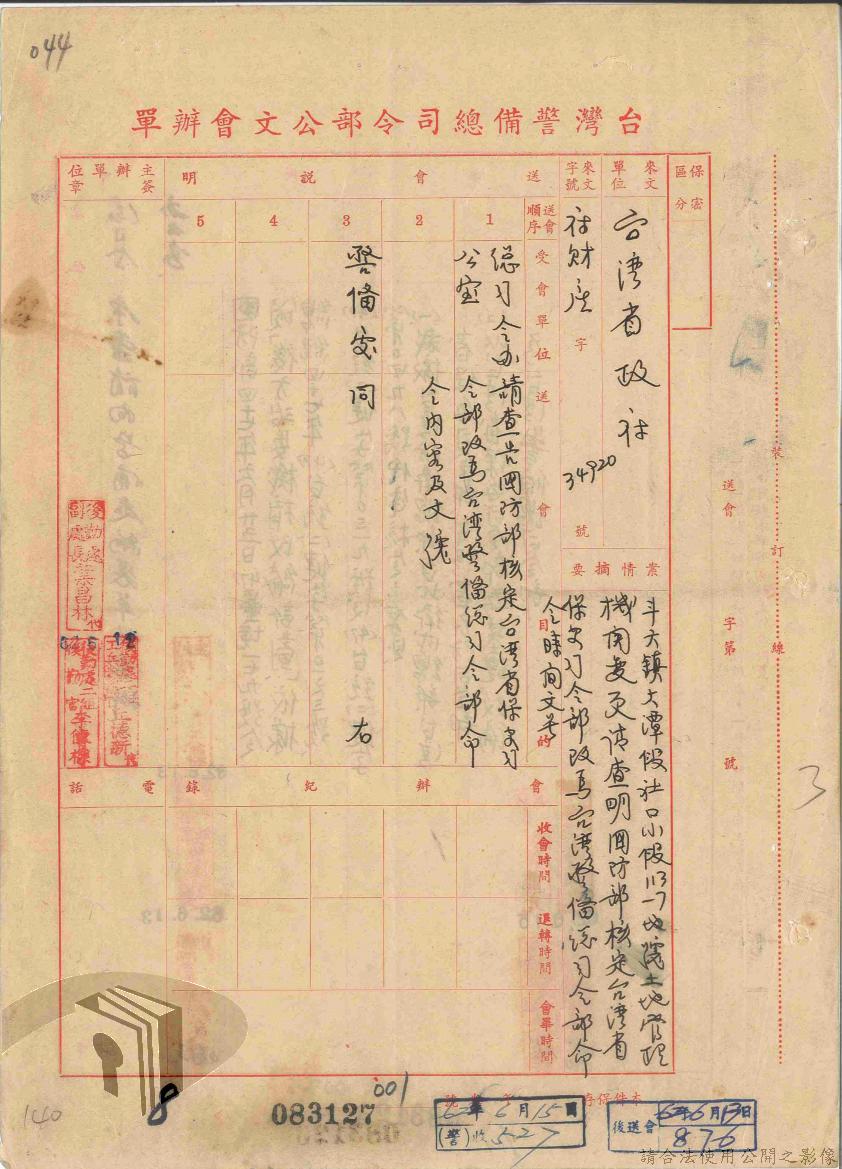 044
台灣警備總司令部公文會辦單
保密區分
來文單位
台灣省政府
來文字號
財產字
34920
號
案情摘要
斗六鎮大潭段社口小段113-7地號土地管理
機關變更請查明國防部核定台灣省
保安司令部改為台灣警備總司令部命
令時間文號
送會說明
送會順序
1
2
3
4
5
受會單位
送會目的
總司令辦
公室
請查告國防部核定台灣省保安司
令部改為台灣警備總司令部命
令內容及文號
警備處同
右
主辦單位簽章
電話
會辦紀錄
收會時間
退轉時間
會畢時間
裝
訂
線
送會
字第
號
3
後勤處副處長
林
62.6.13
140
8
083127
001
62年6月15日
(警)收527
62年6月13日
後送會
876
本件保存
請合法使用公開之影像